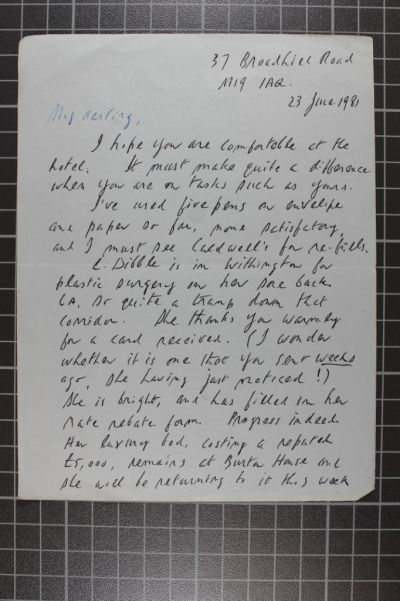 37 Broadhill Road
M19 1AQ.
23 June 1981
My darling,
I hope you are comfortable at the
hotel. It must make quite a difference
when you are on tasks such as yours.
I've used five pens on envelope
and paper so far, none satisfactory,
and I must see Caldwell's for re-fills.
E. Dibble is in Withington for
plastic surgery on her sore back.
6A, so quite a tramp down that
corridor. She thanks you warmly
for a card received. (I wonder
whether it is one that you sent weeks
ago, she having just noticed!)
She is bright, and has filled in her
rate rebate form. Progress indeed.
Her luxury bed, costing a reputed
£5,000, remains at Burton House and
she will be returning to it this week